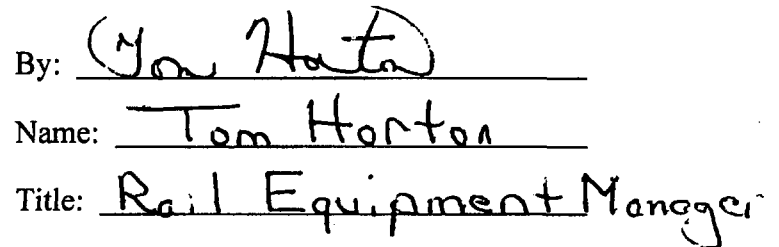 By: Tom Horton
Name: Tom Horton
Title: Rail Equipment Manager